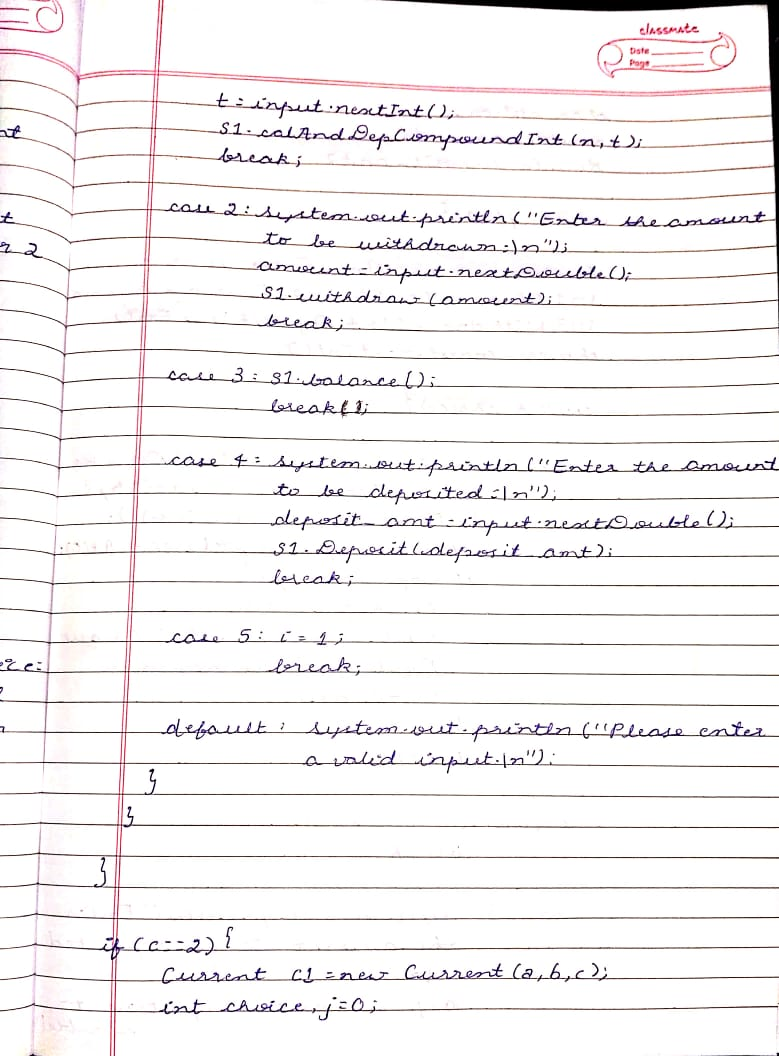 classmate
Date
Page
t = input.nextInt();
S1.calAndDepCompoundInt(n,t);
break;
case 2: system.out.println("Enter the amount
to be withdrawn:\n");
amount = input.nextDouble();
S1.withdraw(amount);
break;
case 3: S1.balance();
break;
case 4: system.out.println("Enter the amount
to be deposited:\n");
deposit_amt = input.nextDouble();
S1.Deposit(deposit_amt);
break;
case 5: i = 1;
break;
default: system.out.println("Please enter
a valid input.\n");
}
}
}
if (c==2) {
Current C1 = new Current(a,b,c);
int choice, j=0;